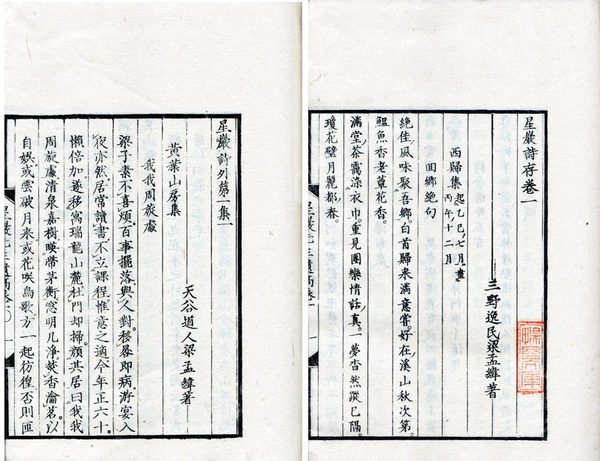 星巖詩存卷一
三野逸民梁孟緯著
西歸集起乙巳七月盡丙午十二月
回鄉絕句
絕佳風味聚吾鄉白首歸來滿意嘗好在溪山秋次第
鰮魚香老蕈花香
滿堂荼靄濕衣巾重見團欒情話真一夢杳然蹤已隔
瓊花璧月麗都春
星巖詩外第一集一
天谷道人梁孟緯著
黃葉山房集
我我周旋處
梁子素不喜煩百事擺落與人對移晷即病游宴入
夜亦然居常讀書不立課程惟意之適今年正六十
懶倍加遂移寓瑞龍山麓杜門却掃顏其居曰我我
周旋處清泉嘉樹映帶茅衡窓明几淨焚香瀹茗以
自娛或雲破月來或花咲鳥歌方一起彷徨否則匪